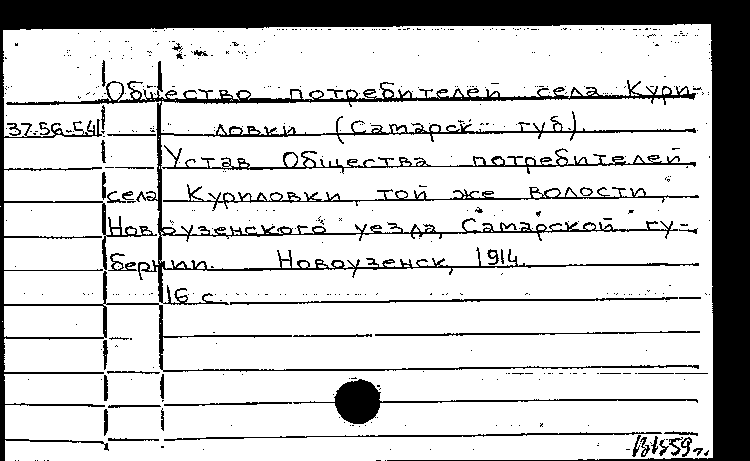 Общество потребителей села Кури-
37-56-54 ловки (Самарск. губ.).
Устав Общества потребителей
села Куриловки, той же волости,
Новоузенского уезда, Самарской гу-
бернии. Новоузенск, 1914.
16 с.